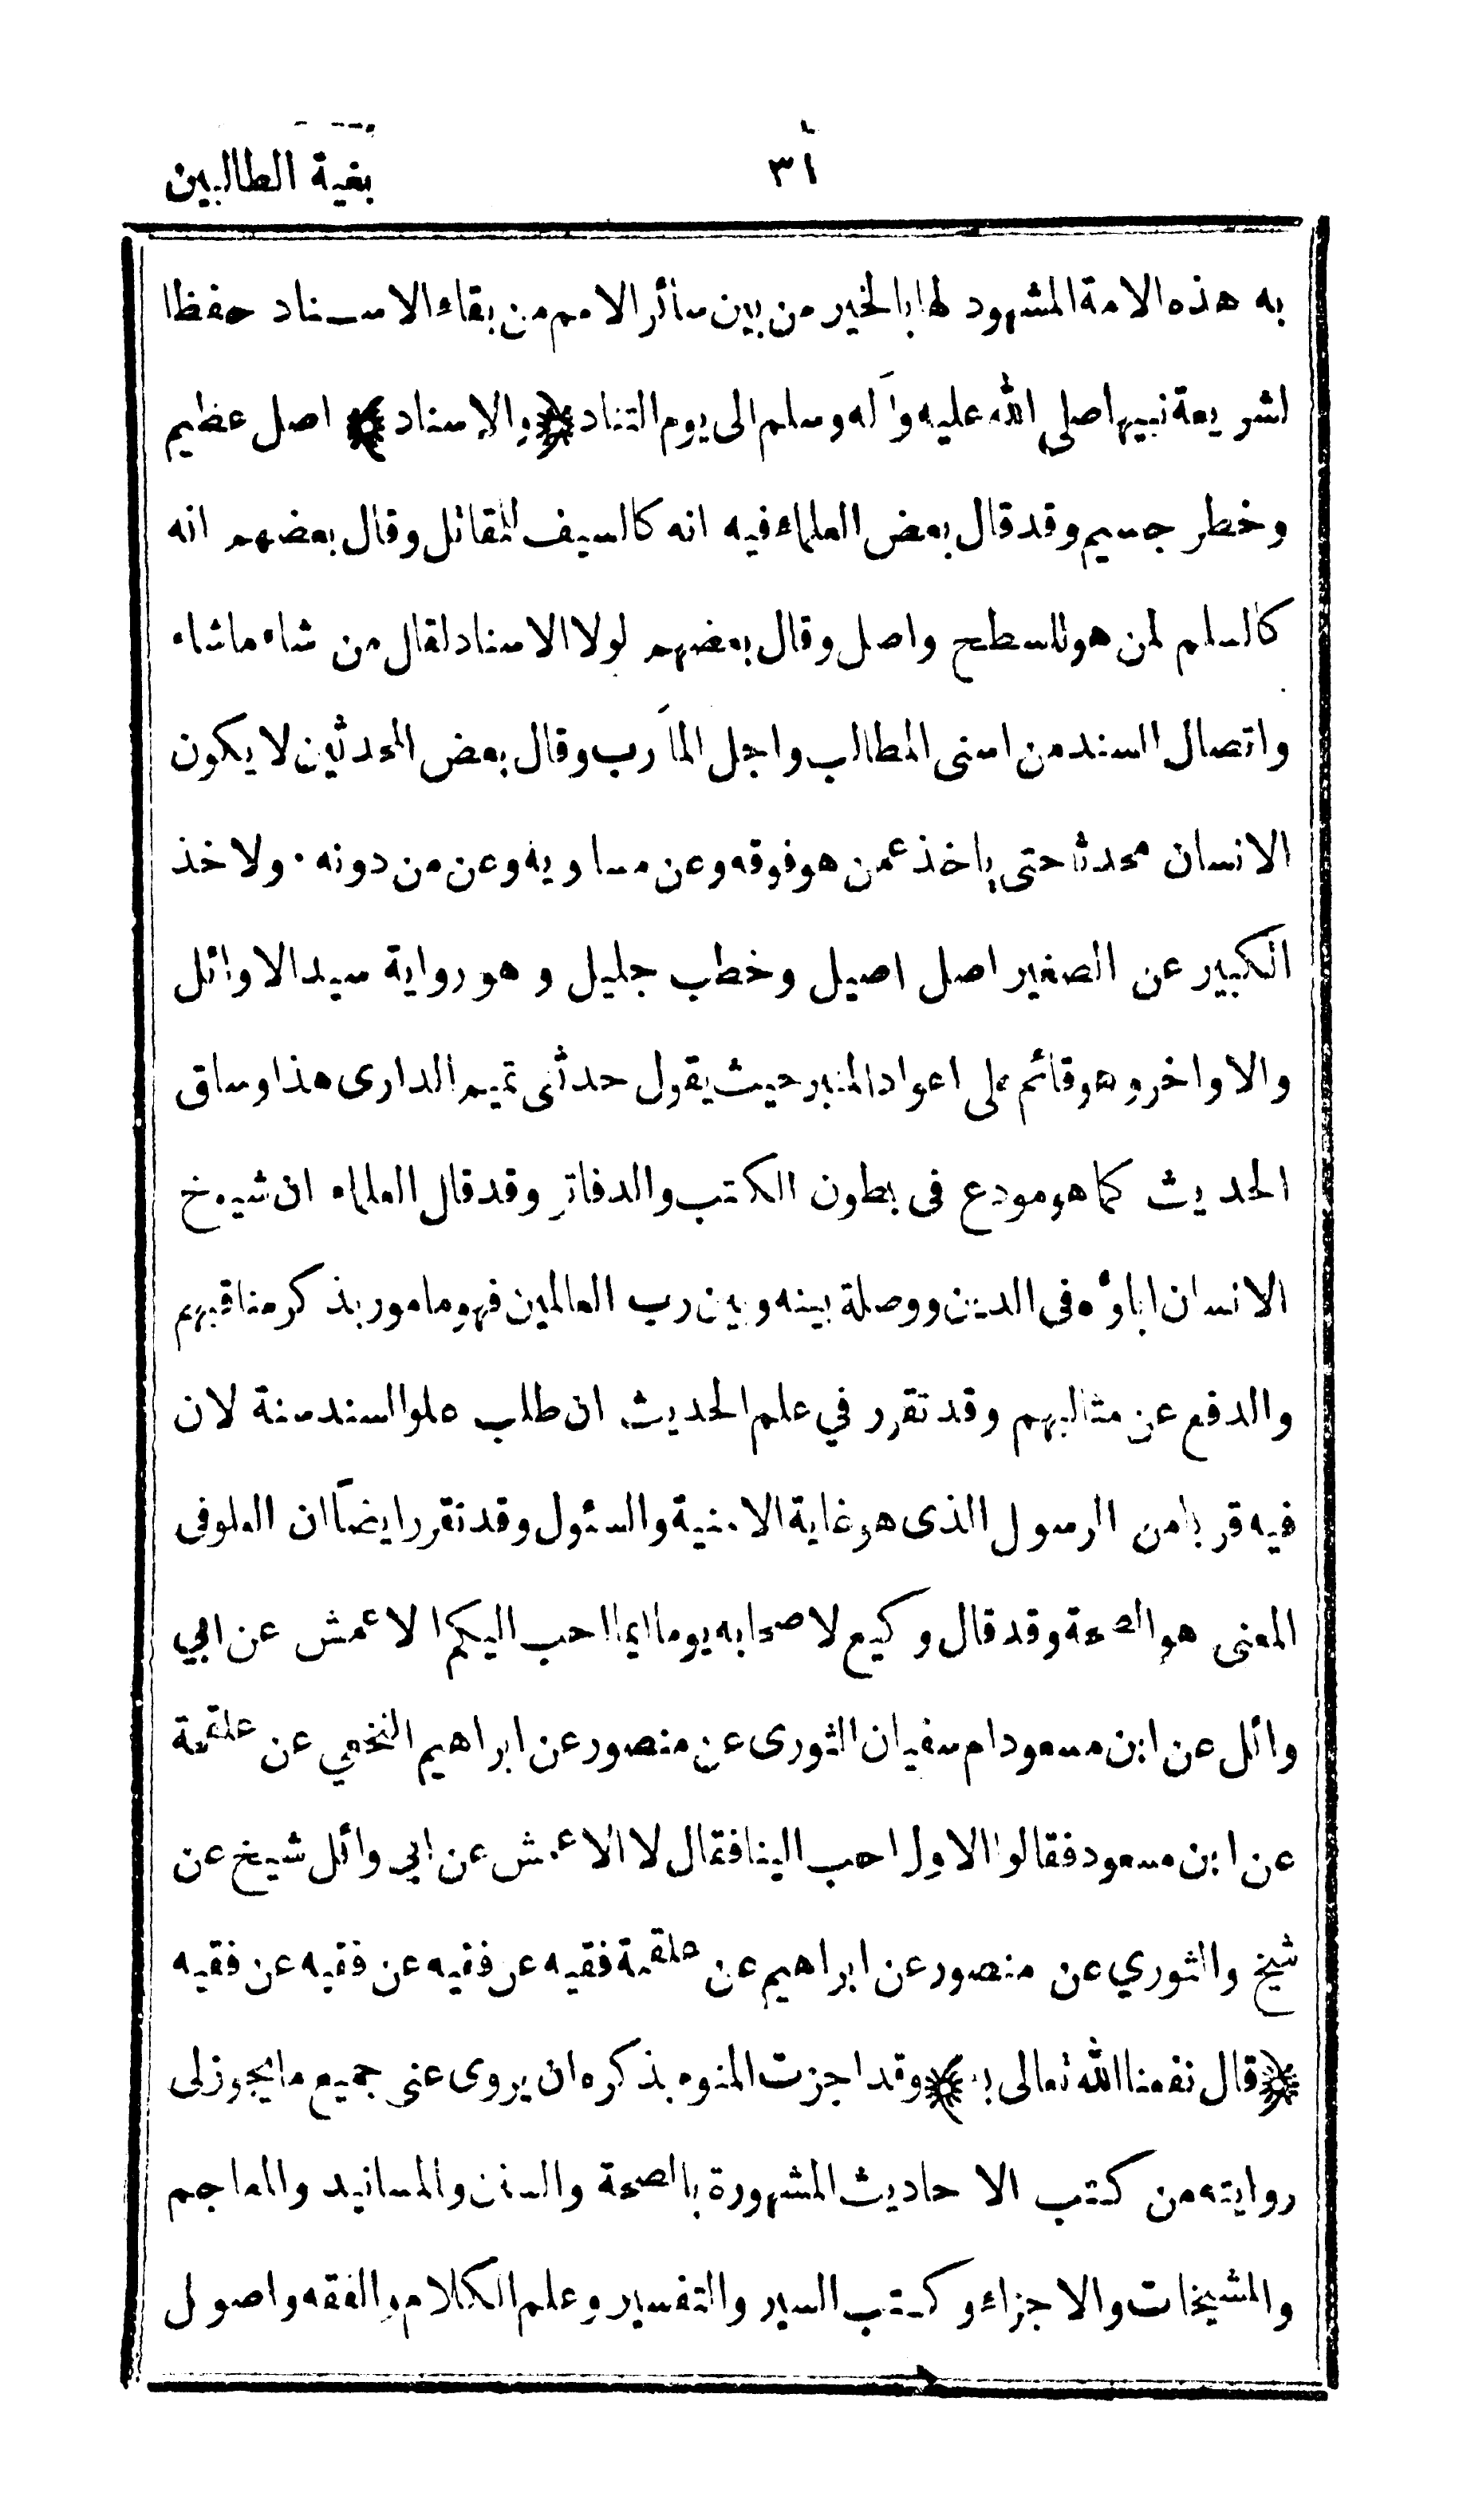 ٣١ بغية الطالبين
به هذه الامة المشهود لها بالخير من بين سائر الامم من بقاء الاسناد حفظا
لشريعة نبيها صلى الله عليه وآله وسلم الى يوم التناد ﴿والاسناد﴾ اصل عظيم
وخطر جسيم وقد قال بعض العلماء فيه انه كالسيف للمقاتل وقال بعضهم انه
كالسلم لمن هو للسطح واصل وقال بعضهم لولا الاسناد لقال من شاء ماشاء
واتصال السند من اسنى المطالب واجل المآرب وقال بعض المحدثين لا يكون
الانسان محدثا حتى ياخذ عمن هو فوقه وعن مساويه وعن من دونه ٠ ولاخذ
الكبير عن الصغير اصل اصيل وخطب جليل وهو رواية سيد الاوائل
والاواخر وهو قائم على اعواد المنبر حيث يقول حدثنى تميم الدارى هذا وساق
الحديث كما هو مودع فى بطون الكتب والدفاتر وقد قال العلماء ان شيوخ
الانسان اباؤه فى الدين ووصلة بينه وبين رب العالمين فهو مامور بذكر مناقبهم
والدفع عن مثالبهم وقد تقرر في علم الحديث ان طلب علو السند سنة لان
فيه قربا من الرسول الذى هو غاية الامنية والسئول وقد تقرر ايضاً ان العلو فى
المعنى هو الصحة وقد قال وكيع لاصحابه يوما ايما احب اليكم الاعمش عن ابي
وائل عن ابن مسعود ام سفيان الثورى عن منصور عن ابراهيم النخعي عن علقمة
عن ابن مسعود فقالوا الاول احب الينا فقال لا الاعمش عن ابي وائل شيخ عن
شيخ والثوري عن منصور عن ابراهيم عن علقمة فقيه عن فقيه عن فقيه عن فقيه
﴿قال نفعنا الله تعالى به﴾ وقد اجزت المنوه بذكره ان يروى عنى جميع ما يجوز لى
روايته من كتب الاحاديث المشهورة بالصحة والسنن والمسانيد والمعاجم
والمشيخات والاجزاء وكتب السير والتفسير وعلم الكلام والفقه واصول